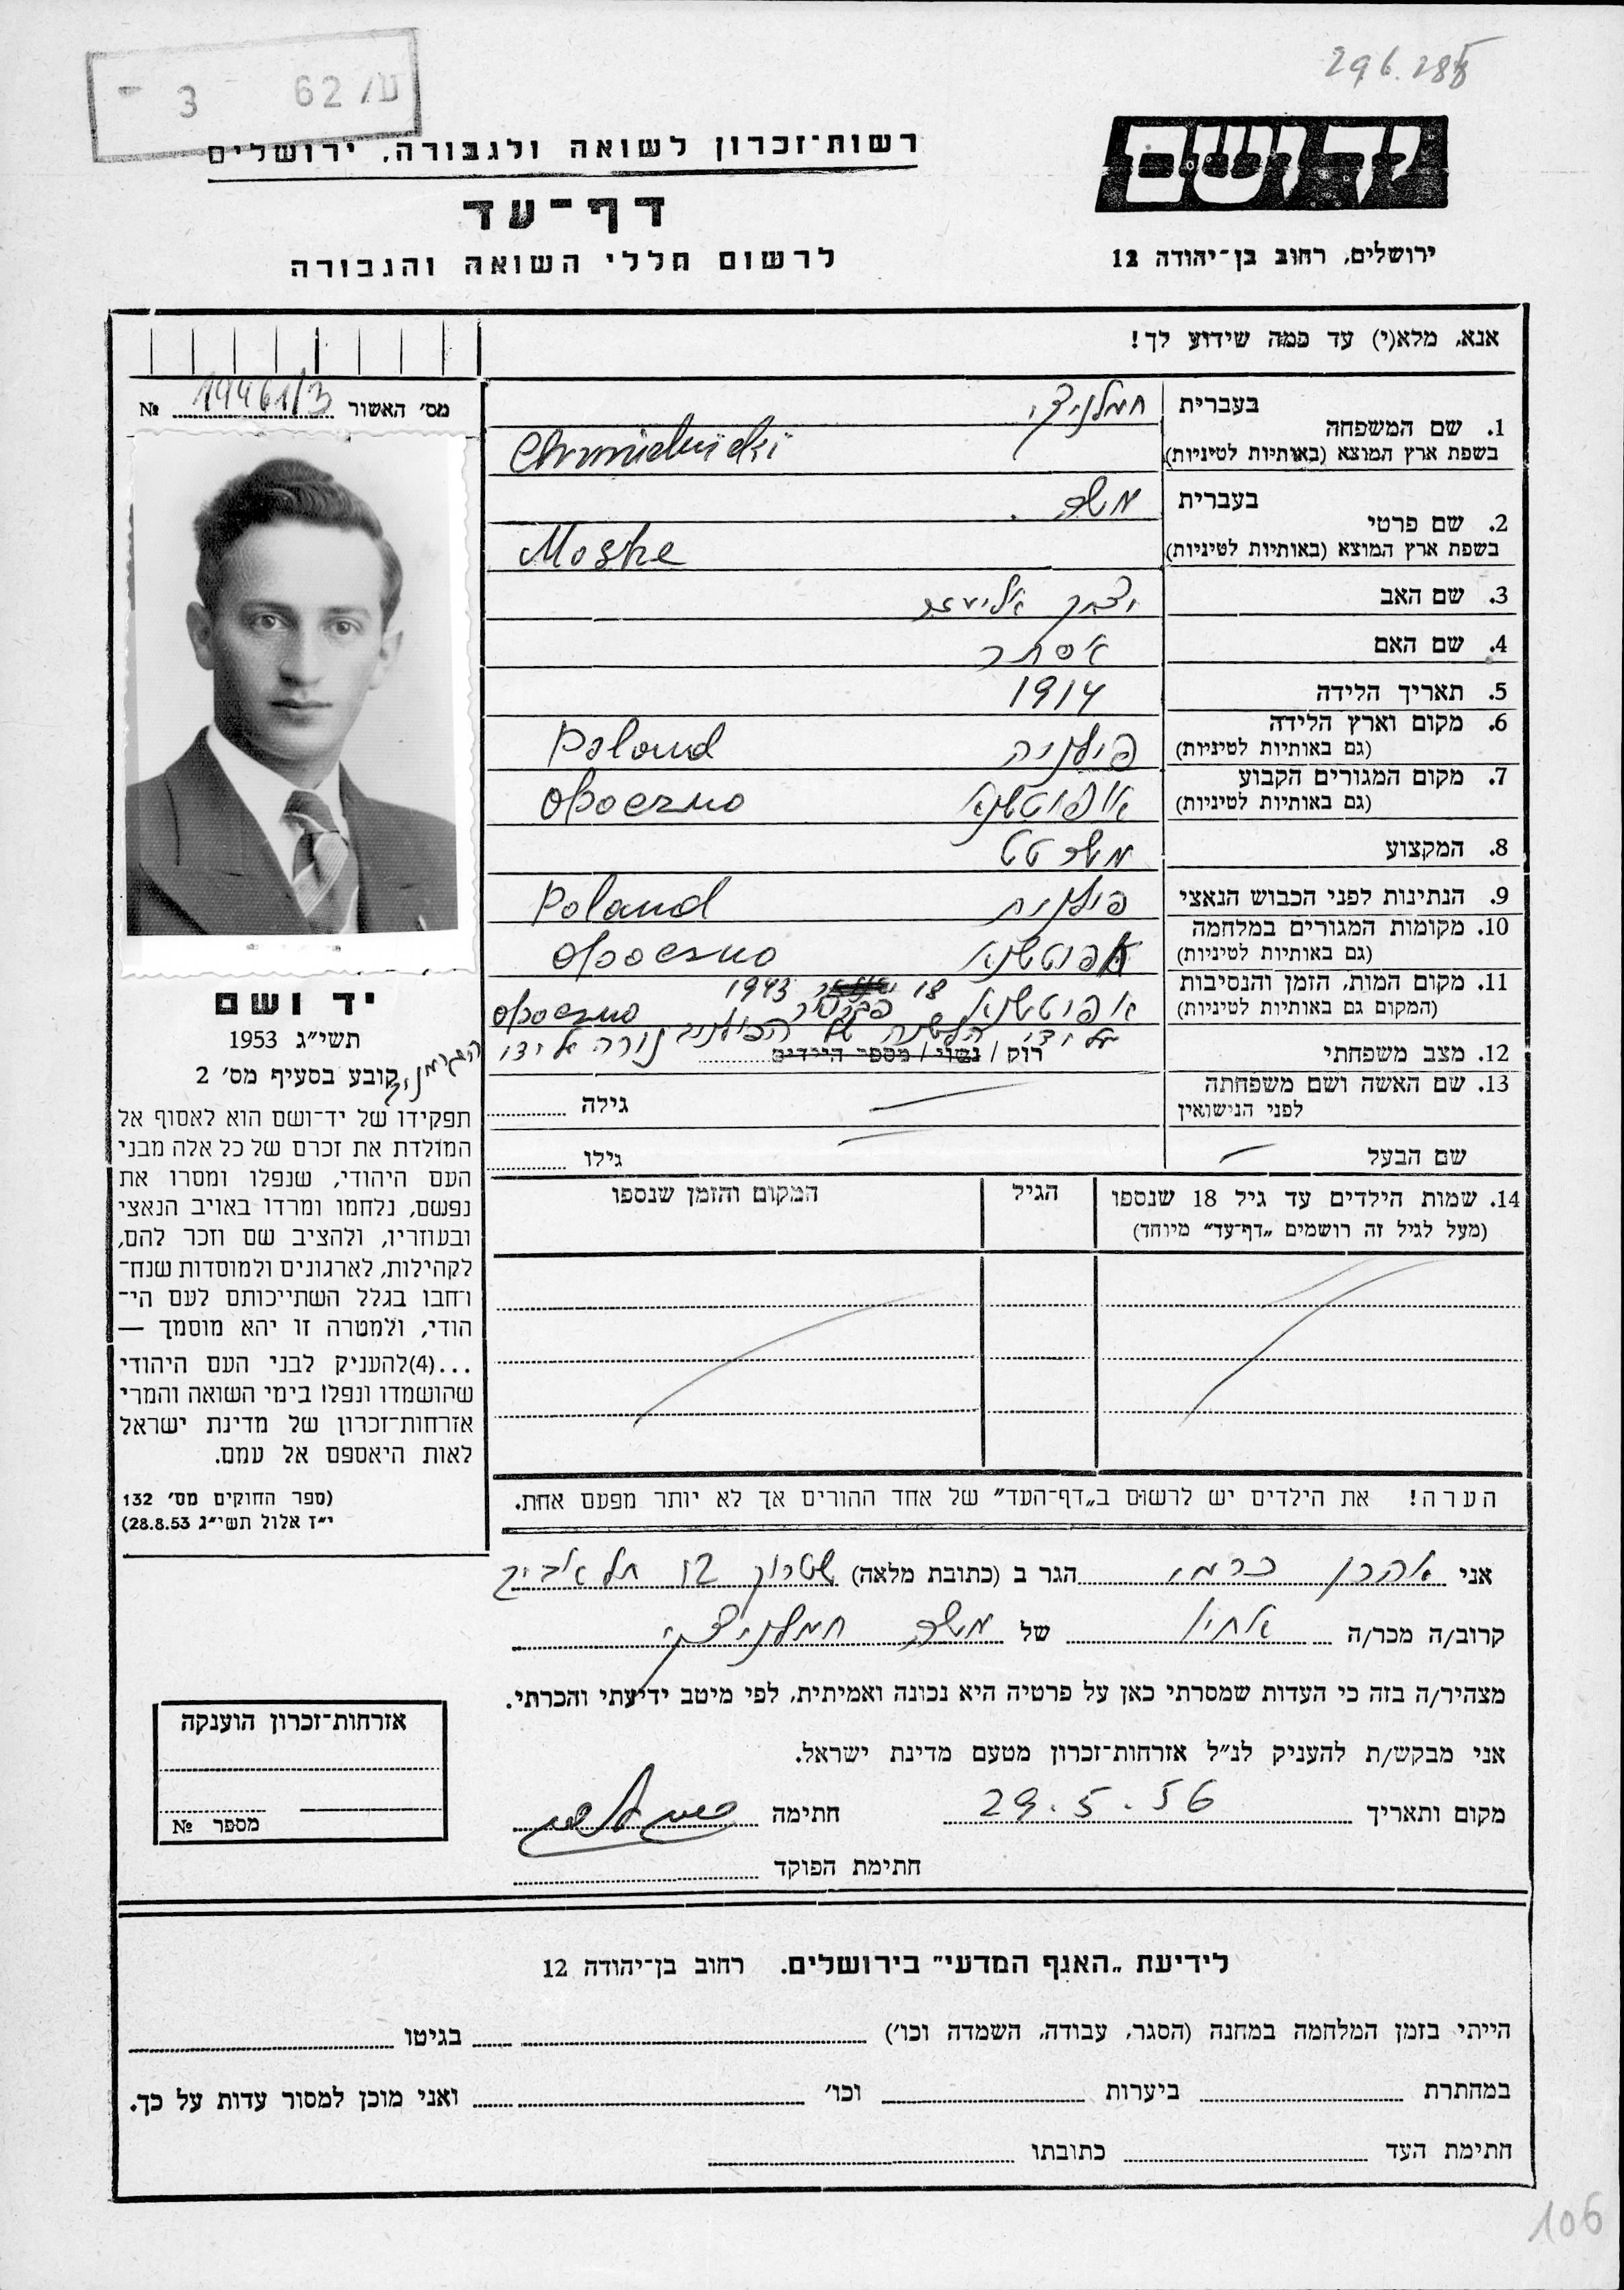 296.285
3 62 /ע
רשות־זכרון לשואה ולגבורה, ירושלים
ידושם
דף־עד
לרשום חללי השואה והגבורה
ירושלים, רחוב בן־יהודה 12
אנא, מלא(י) עד כמה שידוע לך!
מס׳ האשור 19461/3 №
1. שם המשפחה בעברית חמלניצקי
בשפת ארץ המוצא (באותיות לטיניות) Chmielnicki
2. שם פרטי בעברית משה
בשפת ארץ המוצא (באותיות לטיניות) Moshe
3. שם האב יצחק אליעזר
4. שם האם אסתר
5. תאריך הלידה 1914
6. מקום וארץ הלידה פולניה Poland
(גם באותיות לטיניות)
7. מקום המגורים הקבוע אופוטשנא Opoczno
(גם באותיות לטיניות)
8. המקצוע
9. הנתינות לפני הכבוש הנאצי פולנית Poland
10. מקומות המגורים במלחמה אפוטשנא Opoczno
(גם באותיות לטיניות)
11. מקום המות, הזמן והנסיבות אפוטשנא 18 פברואר 1943 Opoczno
(המקום גם באותיות לטיניות)
על ידי הלשנה של הפולנים נורה על ידי הגרמנים
12. מצב משפחתי רוק / נשוי / מספר הילדים
13. שם האשה ושם משפחתה גילה
לפני הנישואין
שם הבעל גילו
14. שמות הילדים עד גיל 18 שנספו הגיל המקום והזמן שנספו
(מעל לגיל זה רושמים „דף־עד״ מיוחד)
הערה! את הילדים יש לרשום ב„דף־העד״ של אחד ההורים אך לא יותר מפעם אחת.
יד ושם
תשי״ג 1953
קובע בסעיף מס׳ 2
תפקידו של יד־ושם הוא לאסוף אל
המולדת את זכרם של כל אלה מבני
העם היהודי, שנפלו ומסרו את
נפשם, נלחמו ומרדו באויב הנאצי
ובעוזריו, ולהציב שם וזכר להם,
לקהילות, לארגונים ולמוסדות שנח־
רחבו בגלל השתייכותם לעם הי־
הודי, ולמטרה זו יהא מוסמך —
...(4)להעניק לבני העם היהודי
שהושמדו ונפלו בימי השואה והמרי
אזרחות־זכרון של מדינת ישראל
לאות היאספם אל עמם.
(ספר החוקים מס׳ 132
י״ז אלול תשי״ג 28.8.53)
אני אהרן כרמי הגר ב (כתובת מלאה) שטרוק 12 תל אביב
קרוב/ה מכר/ה אחיו של משה חמלניצקי
מצהיר/ה בזה כי העדות שמסרתי כאן על פרטיה היא נכונה ואמיתית, לפי מיטב ידיעתי והכרתי.
אני מבקש/ת להעניק לנ״ל אזרחות־זכרון מטעם מדינת ישראל.
מקום ותאריך 29.5.56 חתימה
חתימת הפוקד
אזרחות־זכרון הוענקה
מספר №
לידיעת „האגף המדעי״ בירושלים. רחוב בן־יהודה 12
הייתי בזמן המלחמה במחנה (הסגר, עבודה, השמדה וכו׳) בגיטו
במהתרת ביערות וכו׳ ואני מוכן למסור עדות על כך.
חתימת העד כתובתו
106